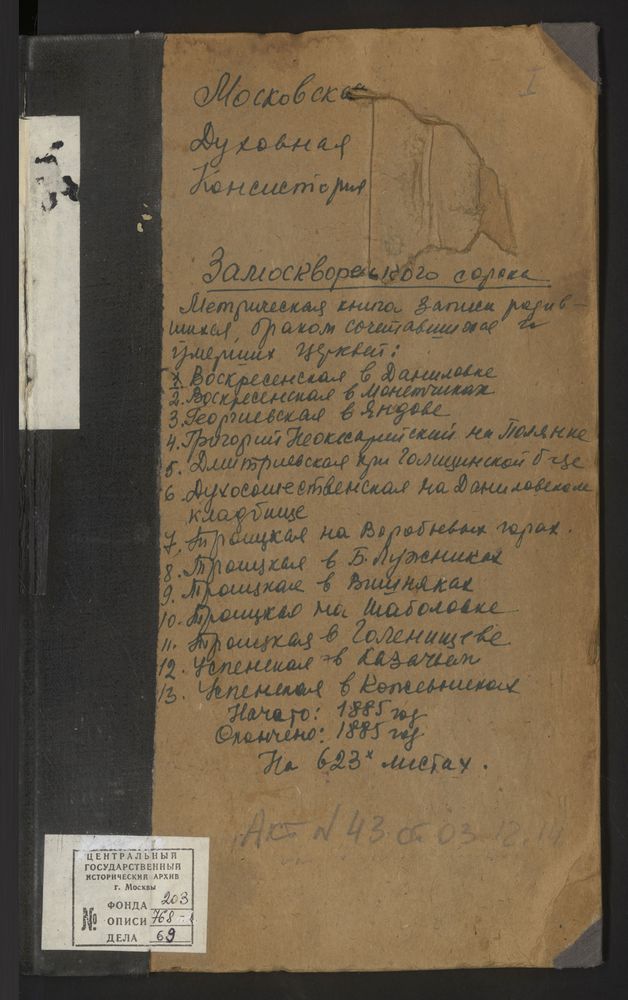 I
Московская
Духовная
Консистория
Замоскворецкого сорока
Метрическая книга записи родив-
шихся, браком сочетавшихся и
умерших церквей:
1. Воскресенская в Даниловке
2. Воскресенская в Монетчиках
3. Георгиевская в Яндове
4. Григорий Неокесарийский на Полянке
5. Дмитриевская при Голицинской б-це
6. Духосошественская на Даниловском
кладбище
7. Троицкая на Воробьевых горах.
8. Троицкая в Б. Лужниках
9. Троицкая в Вишняках
10. Троицкая на Шаболовке
11. Троицкая в Голенищеве
12. Успенская в Казачьем
13. Успенская в Кожевниках
Начато: 1885 год
Окончено: 1885 год
На 623х листах.
Акт N 43 от 03.12.14
ЦЕНТРАЛЬНЫЙ
ГОСУДАРСТВЕННЫЙ
ИСТОРИЧЕСКИЙ АРХИВ
г. Москвы
ФОНДА 203
№ ОПИСИ 768
ДЕЛА 69